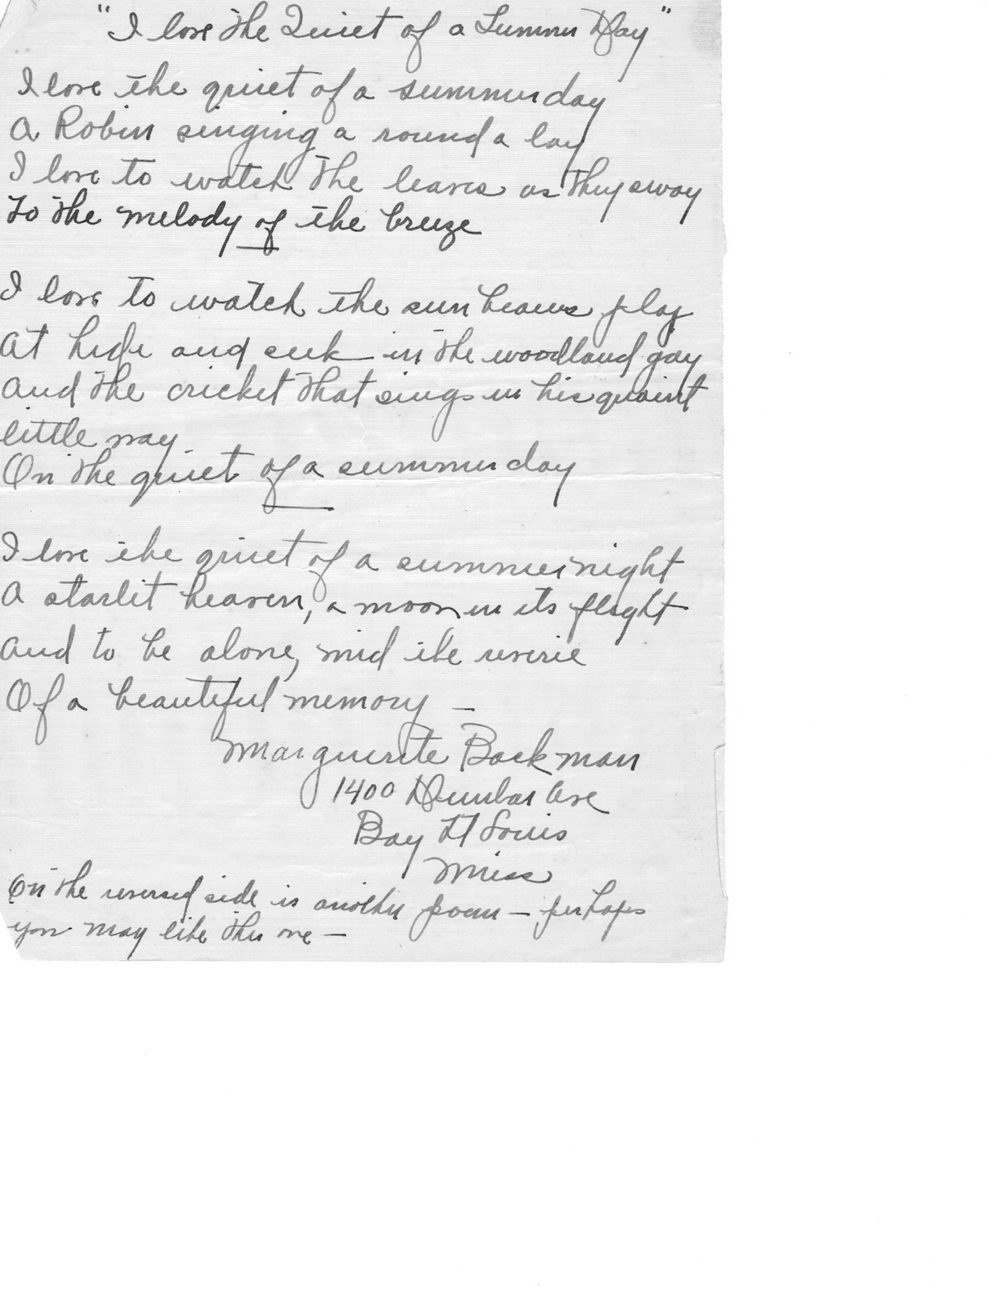 "I love the Quiet of a Summer Day"
I love the quiet of a summer day
A Robin singing a round a lay
I love to watch the leaves as they sway
To the melody of the breeze
I love to watch the sun beams play
At hide and seek in the woodland gay
And the cricket that sings in his quaint
little way
On the quiet of a summer day
I love the quiet of a summer night
A starlit heaven, a moon in its flight
And to be alone, mid the reverie
Of a beautiful memory —
Marguerite Backman
1400 Dunbar Ave
Bay St Louis
Miss
On the reversed side is another poem — perhaps
you may like this one —